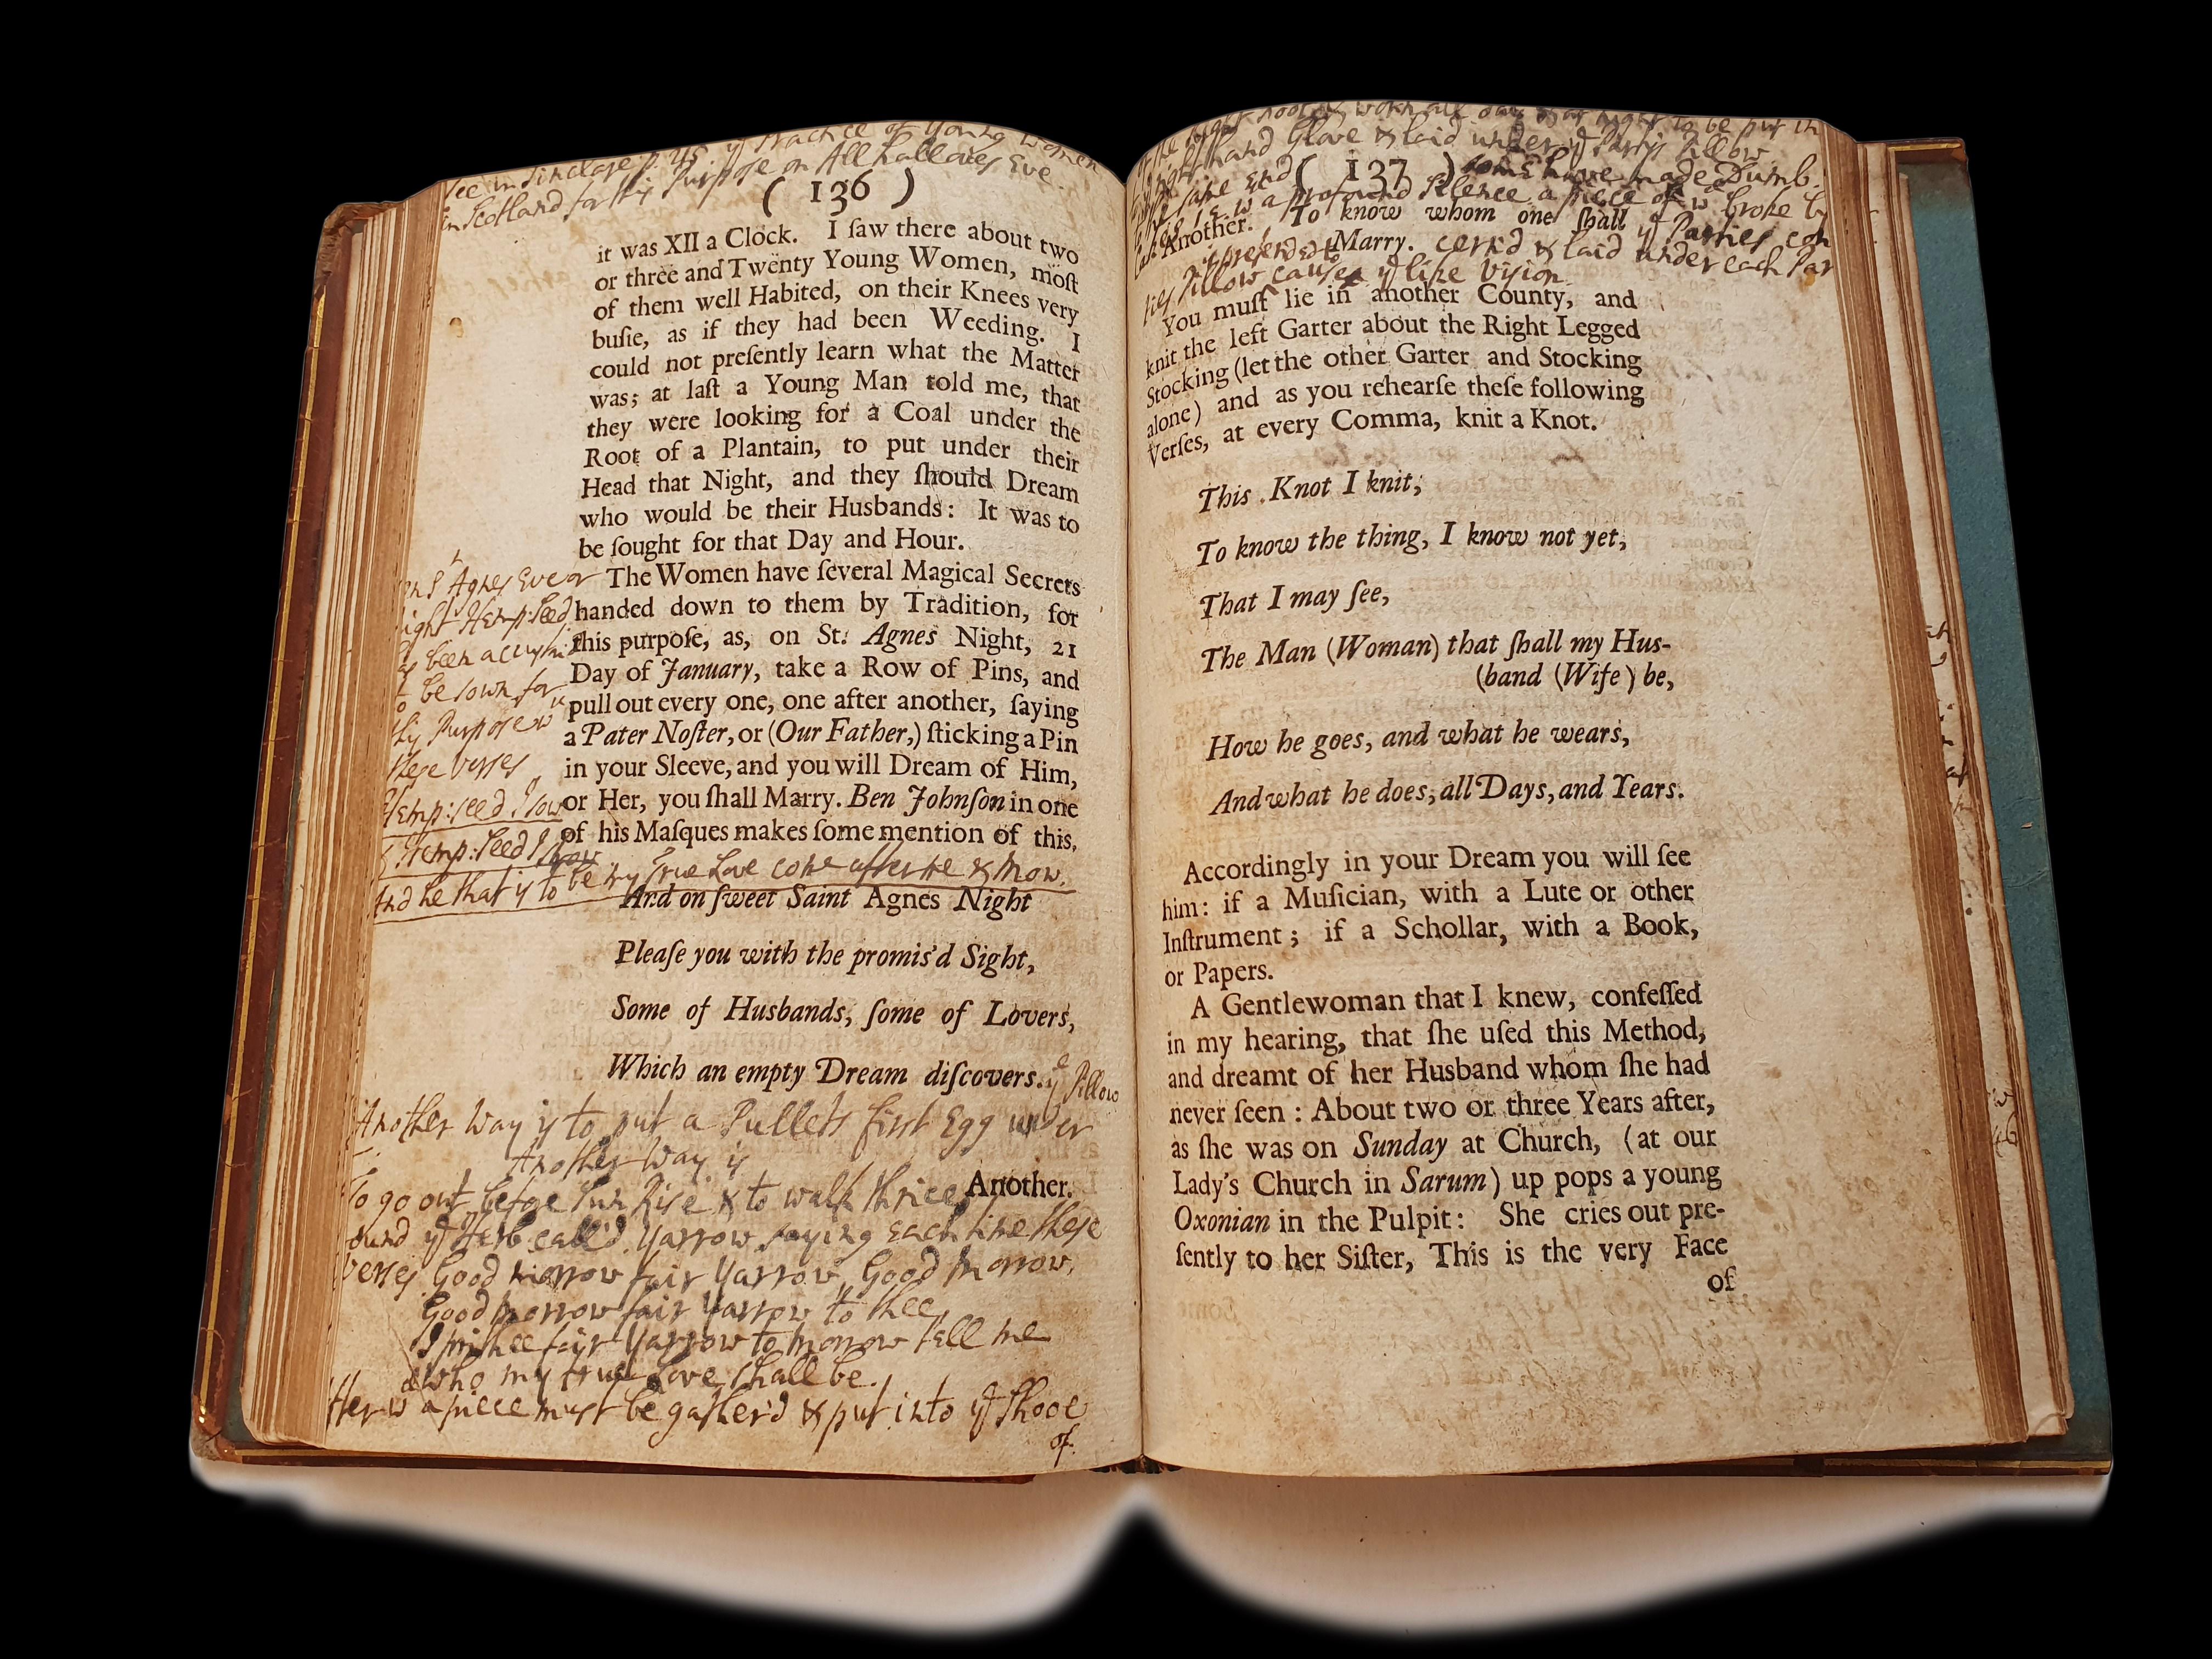 See in Sinclare p. ye Practice of Young Women
in Scotland for this Purpose on All hallowes Eve.
( 136 )
it was XII a Clock. I ſaw there about two
or three and Twenty Young Women, moſt
of them well Habited, on their Knees very
buſie, as if they had been Weeding. I
could not preſently learn what the Matter
was; at laſt a Young Man told me, that
they were looking for a Coal under the
Root of a Plantain, to put under their
Head that Night, and they ſhould Dream
who would be their Husbands: It was to
be ſought for that Day and Hour.
The Women have ſeveral Magical Secrets
handed down to them by Tradition, for
this purpoſe, as, on St. Agnes Night, 21
Day of January, take a Row of Pins, and
pull out every one, one after another, ſaying
a Pater Noſter, or (Our Father,) ſticking a Pin
in your Sleeve, and you will Dream of Him,
or Her, you ſhall Marry. Ben Johnſon in one
of his Maſques makes ſome mention of this,
on St Agnes Eve or
Night Hemp:seed
been accustom
be sown for
this Purpose wth
these verses
Hemp:seed I sow
& Hemp:seed I mow
And he that is to be my true Love come after me & mow.
And on ſweet Saint Agnes Night
Pleaſe you with the promis'd Sight,
Some of Husbands, ſome of Lovers,
Which an empty Dream diſcovers.
ye Pillow
Another way is to put a Pullets first Egg under
Another way is
Another.
To go out before Sun Rise & to walk thrice
ound ye Herb call'd Yarrow saying each time these
verses Good morrow fair Yarrow, Good morrow,
Good morrow fair Yarrow to thee,
I prithee fair Yarrow to morrow tell me
who my true Love shall be.
Her w a piece must be gather'd & put into ye Shooe
of
the right foot & worn all day & at night to be put in
right hand Glove & laid under ye Partys Pillow
( 137 )
same End some have made Dumb
w a profound Silence a piece of w broke by
Another. To know whom one ſhall
Marry.
ye Parties con
cern'd & laid under each Par
ties Pillow is pretended to cause ye like Vision.
You muſt lie in another County, and
knit the left Garter about the Right Legged
Stocking (let the other Garter and Stocking
alone) and as you rehearſe theſe following
Verſes, at every Comma, knit a Knot.
This Knot I knit,
To know the thing, I know not yet,
That I may ſee,
The Man (Woman) that ſhall my Hus-
(band (Wife) be,
How he goes, and what he wears,
And what he does, all Days, and Years.
Accordingly in your Dream you will ſee
him: if a Muſician, with a Lute or other
Inſtrument; if a Schollar, with a Book,
or Papers.
A Gentlewoman that I knew, confeſſed
in my hearing, that ſhe uſed this Method,
and dreamt of her Husband whom ſhe had
never ſeen: About two or three Years after,
as ſhe was on Sunday at Church, (at our
Lady's Church in Sarum) up pops a young
Oxonian in the Pulpit: She cries out pre-
ſently to her Siſter, This is the very Face
of